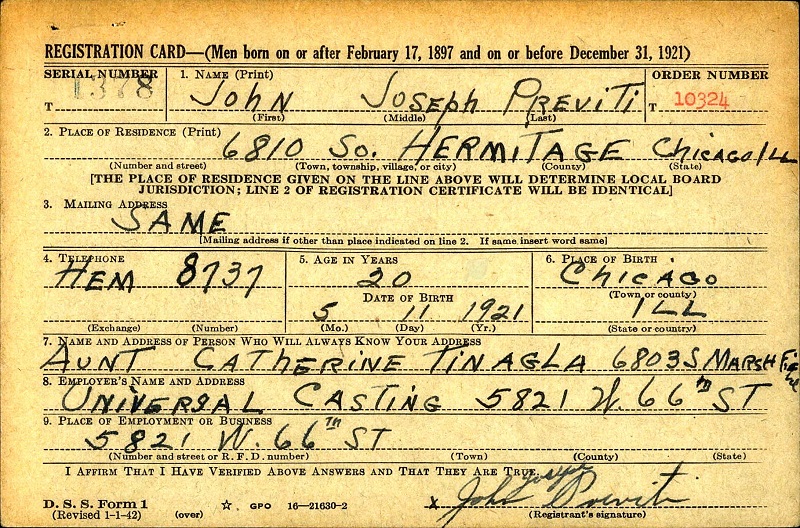 REGISTRATION CARD—(Men born on or after February 17, 1897 and on or before December 31, 1921)
SERIAL NUMBER 1. NAME (Print) ORDER NUMBER
T 1378 JOHN JOSEPH PREVITI T 10324
(First) (Middle) (Last)
2. PLACE OF RESIDENCE (Print)
6810 SO. HERMITAGE CHICAGO ILL
(Number and street) (Town, township, village, or city) (County) (State)
[THE PLACE OF RESIDENCE GIVEN ON THE LINE ABOVE WILL DETERMINE LOCAL BOARD
JURISDICTION; LINE 2 OF REGISTRATION CERTIFICATE WILL BE IDENTICAL]
3. MAILING ADDRESS
SAME
[Mailing address if other than place indicated on line 2. If same insert word same]
4. TELEPHONE 5. AGE IN YEARS 6. PLACE OF BIRTH
HEM 8737 20 CHICAGO
DATE OF BIRTH (Town or county)
5 11 1921 ILL
(Exchange) (Number) (Mo.) (Day) (Yr.) (State or country)
7. NAME AND ADDRESS OF PERSON WHO WILL ALWAYS KNOW YOUR ADDRESS
AUNT CATHERINE TINAGLA 6803 S MARSHFIELD
8. EMPLOYER'S NAME AND ADDRESS
UNIVERSAL CASTING 5821 W. 66TH ST
9. PLACE OF EMPLOYMENT OR BUSINESS
5821 W. 66TH ST
(Number and street or R. F. D. number) (Town) (County) (State)
I AFFIRM THAT I HAVE VERIFIED ABOVE ANSWERS AND THAT THEY ARE TRUE.
D. S. S. Form 1 ☆ GPO 16—21630-2 X John Joseph Previti
(Revised 1-1-42) (over) (Registrant's signature)